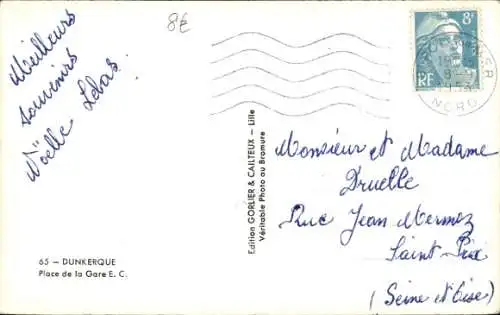 8€
Meilleurs
souvenirs
Noëlle Lebas
65 — DUNKERQUE
Place de la Gare E. C.
Edition GORLIER & CAILTEUX — Lille
Véritable Photo au Bromure
8F
RF
NORD
Monsieur et Madame
Druelle
Rue Jean Mermoz
Saint Prix
(Seine et Oise)